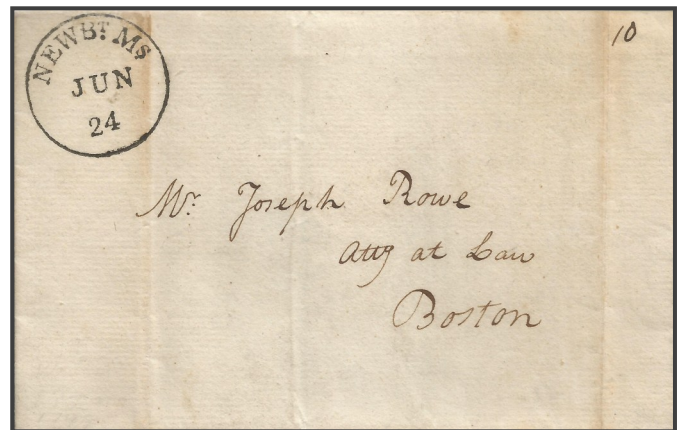 NEWBT. MS
JUN
24
10
Mr. Joseph Rowe
Atty at Law
Boston